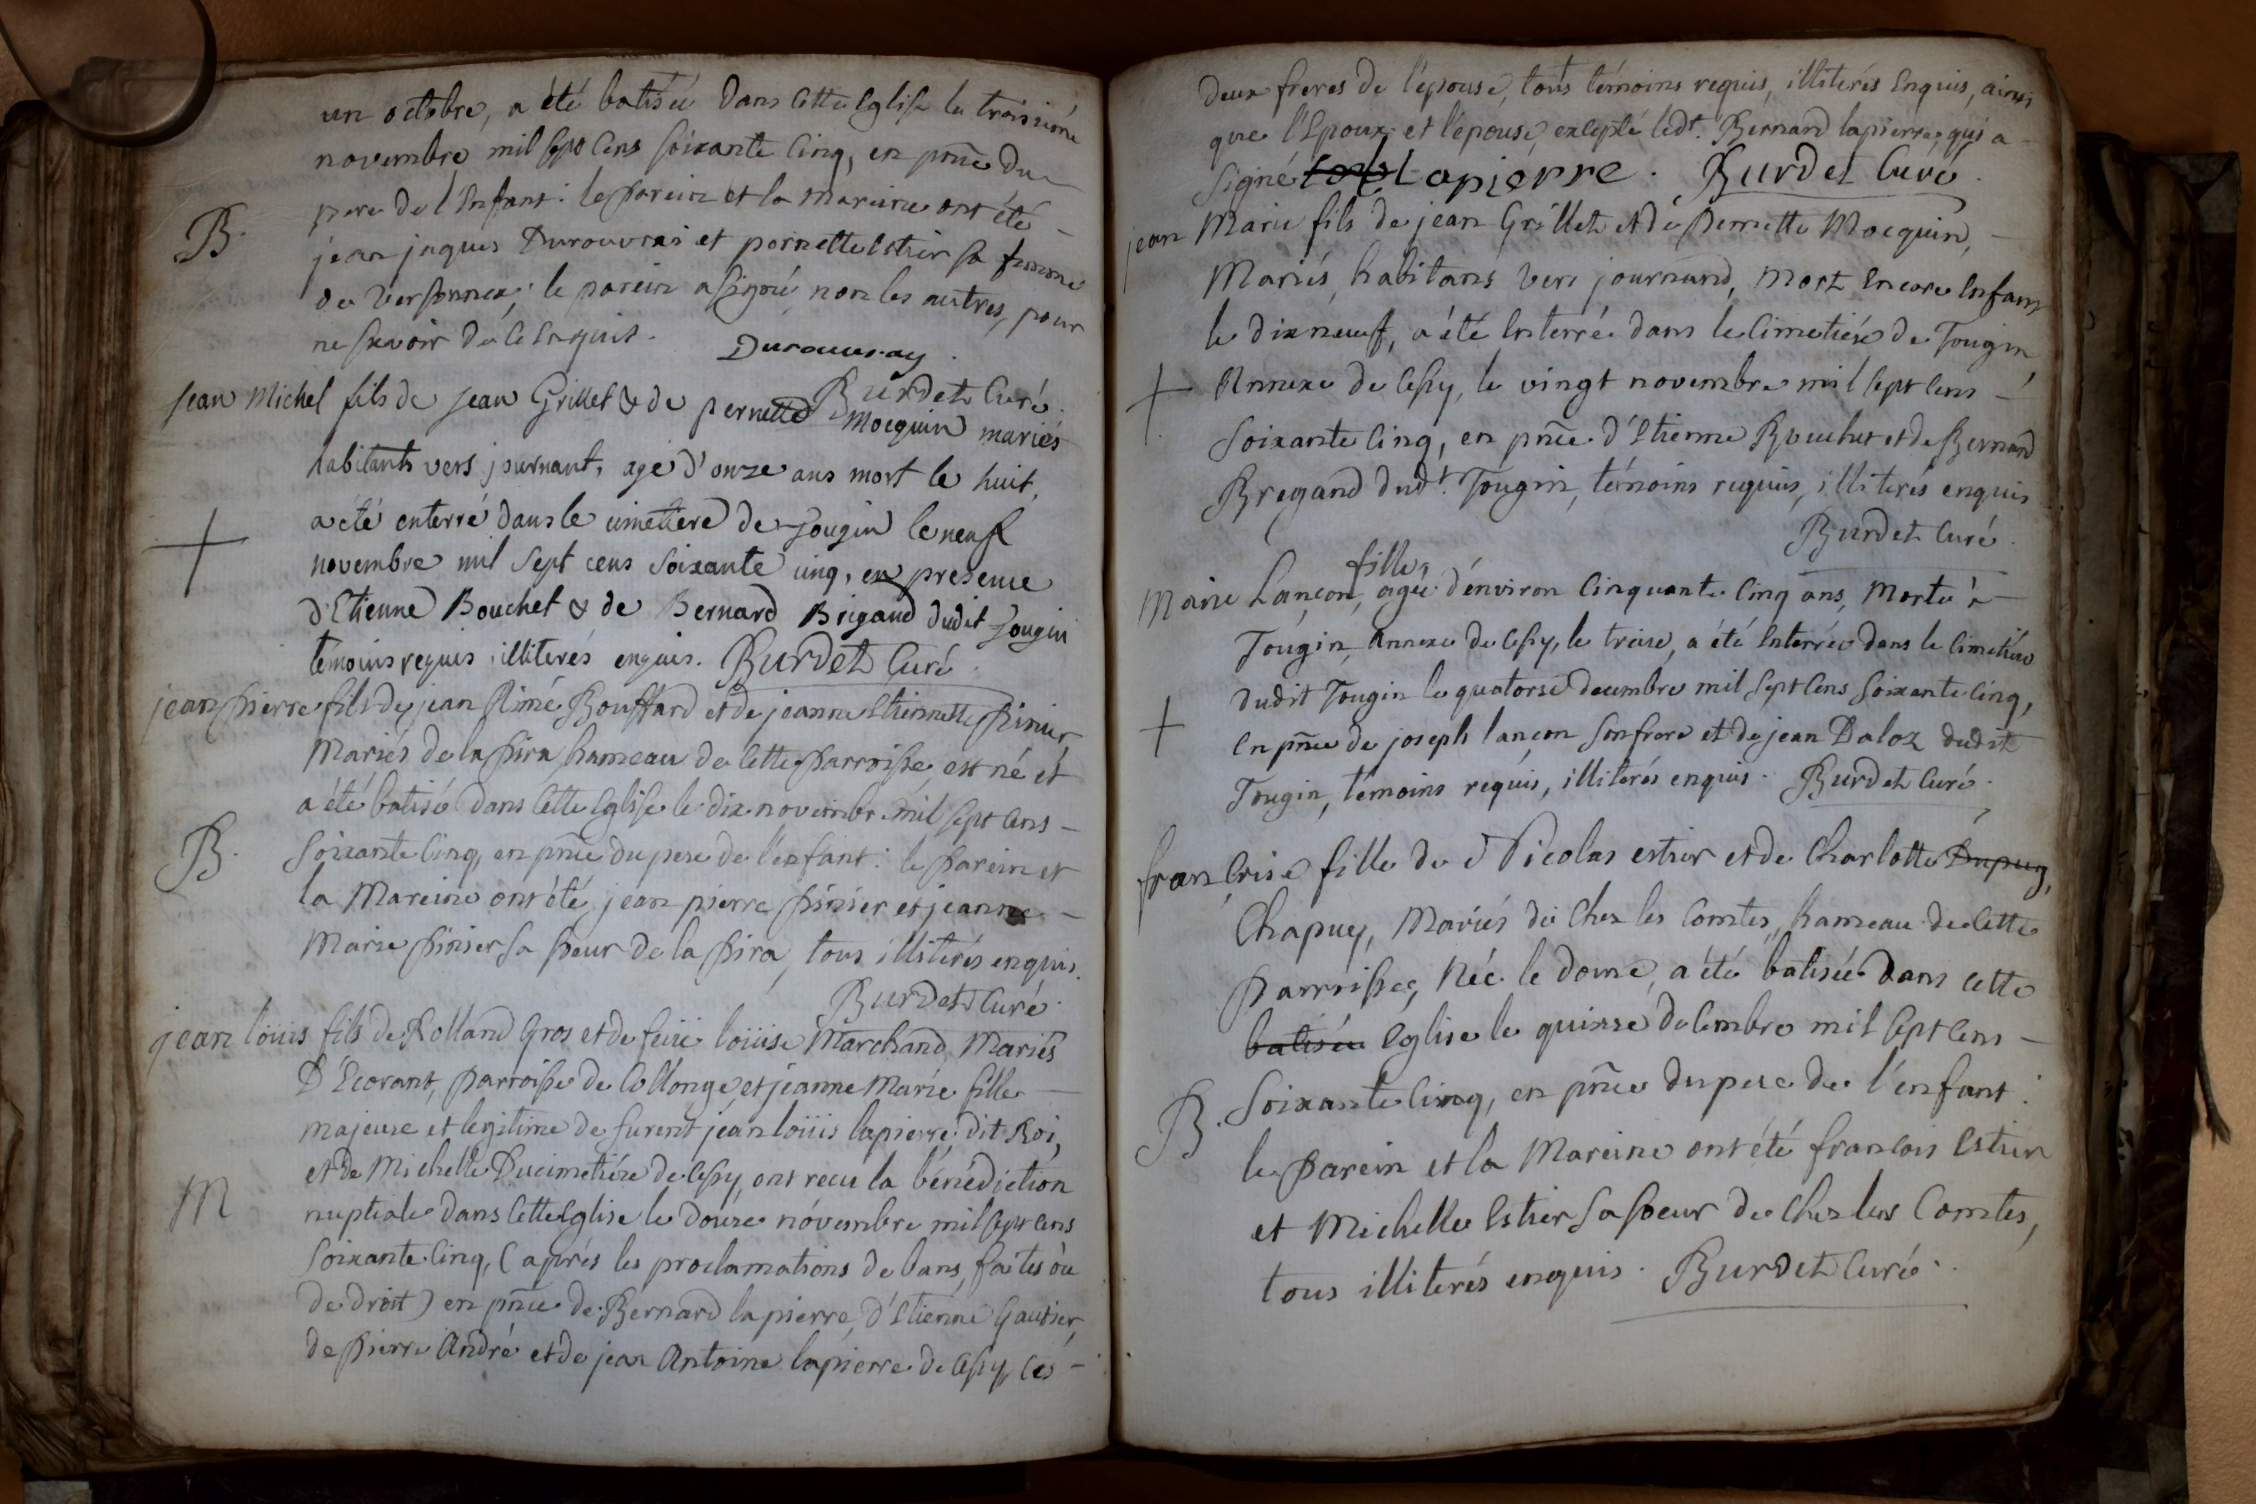 un octobre, a été batisée dans cette Eglise le troisiéme
novembre mil sept cens soixante cinq, en pnce du
pere de l'Enfant : le parein et la mareine ont été
B.
jean jaques Durouvrai et pernette Estier sa femme
de Versonnex; le parein a signé, non les autres, pour
ne savoir de ce enquis.
Durouvray.
Burdet Curé.
Jean Michel fils de Jean Grillet & de pernette Mocquin mariés
habitants vers journant, agé d'onze ans mort le huit,
a été enterré dans le cimetiere de Tougin le neuf
+
novembre mil sept cens soixante cinq, en presence
d'Etienne Bouchet & de Bernard Brigand dudit Tougin
témoins requis illiterés enquis. Burdet Curé.
jean pierre fils de jean Aimé Bouffard et de jeanne Etiennette Pinier
Mariés de la Pira hameau de cette Parroisse, est né et
a été batisé dans cette Eglise le dix novembre mil sept cens
B.
soixante cinq, en pnce du pere de l'enfant : le Parein et
la Mareine ont été jean pierre Pinier et jeanne
Marie Pinier sa soeur de la Pira, tous illiterés enquis.
Burdet Curé.
jean loüis fils de Rolland Gros et de feüe loüise Marchand, Mariés
D'Ecorant, Parroisse de Collonge, et jeanne Marie fille
majeure et legitime de furent jean loüis lapierre dit Roi,
et de Michelle Ducimetiére de Cessy, ont recu la bénédiction
M
nuptiale dans cette Eglise le douze nóvembre mil sept cens
soixante cinq, (aprés les proclamations de bans, faites où
de droit) en pnce de Bernard lapierre, d'Etienne Gautier,
de Pierre André et de jean Antoine lapierre de Cessy, ces
deux freres de l'épouse, tous témoins requis, illiterés enquis, ainsi
que l'Epoux et l'épouse, excepté ledt. Bernard lapierre, qui a
signé Lapierre. Burdet Curé.
jean Marie fils de jean Grillet et de Pernette Mocquin,
Mariés, habitans vers journand, mort encore enfant
le dix neuf, a été enterré dans le Cimetiére de Tougin,
+
Annexe de Cessy, le vingt novembre mil sept cens
soixante cinq, en pnce d'Etienne Bouchet et de Bernard
Bregand dudt. Tougin, témoins requis, illiterés enquis
Burdet Curé.
fille,
Marie Lançon, agée d'environ Cinquante Cinq ans, Morte à
Tougin, Annexe de Cessy, le treize, a été Enterrée dans le Cimetiére
dudit Tougin le quatorse decembre mil sept cens soixante cinq,
+
en pnce de joseph lançon son frere et de jean Daloz dudit
Tougin, témoins requis, illiterés enquis. Burdet Curé.
françoise fille de Nicolas estier et de Charlotte Dupuy,
Chapuy, Mariés de Chez les Comtes, hameau de Cette
Parroisse, Née le douze, a été batisée dans cette
batisée Eglise le quinze decembre mil sept cens
B.
soixante cinq, en pnce du pere de l'enfant :
le Parein et la Mareine ont été françois Estier
et Michelle Estier sa soeur de Chez les Comtes,
tous illiterés enquis. Burdet Curé.